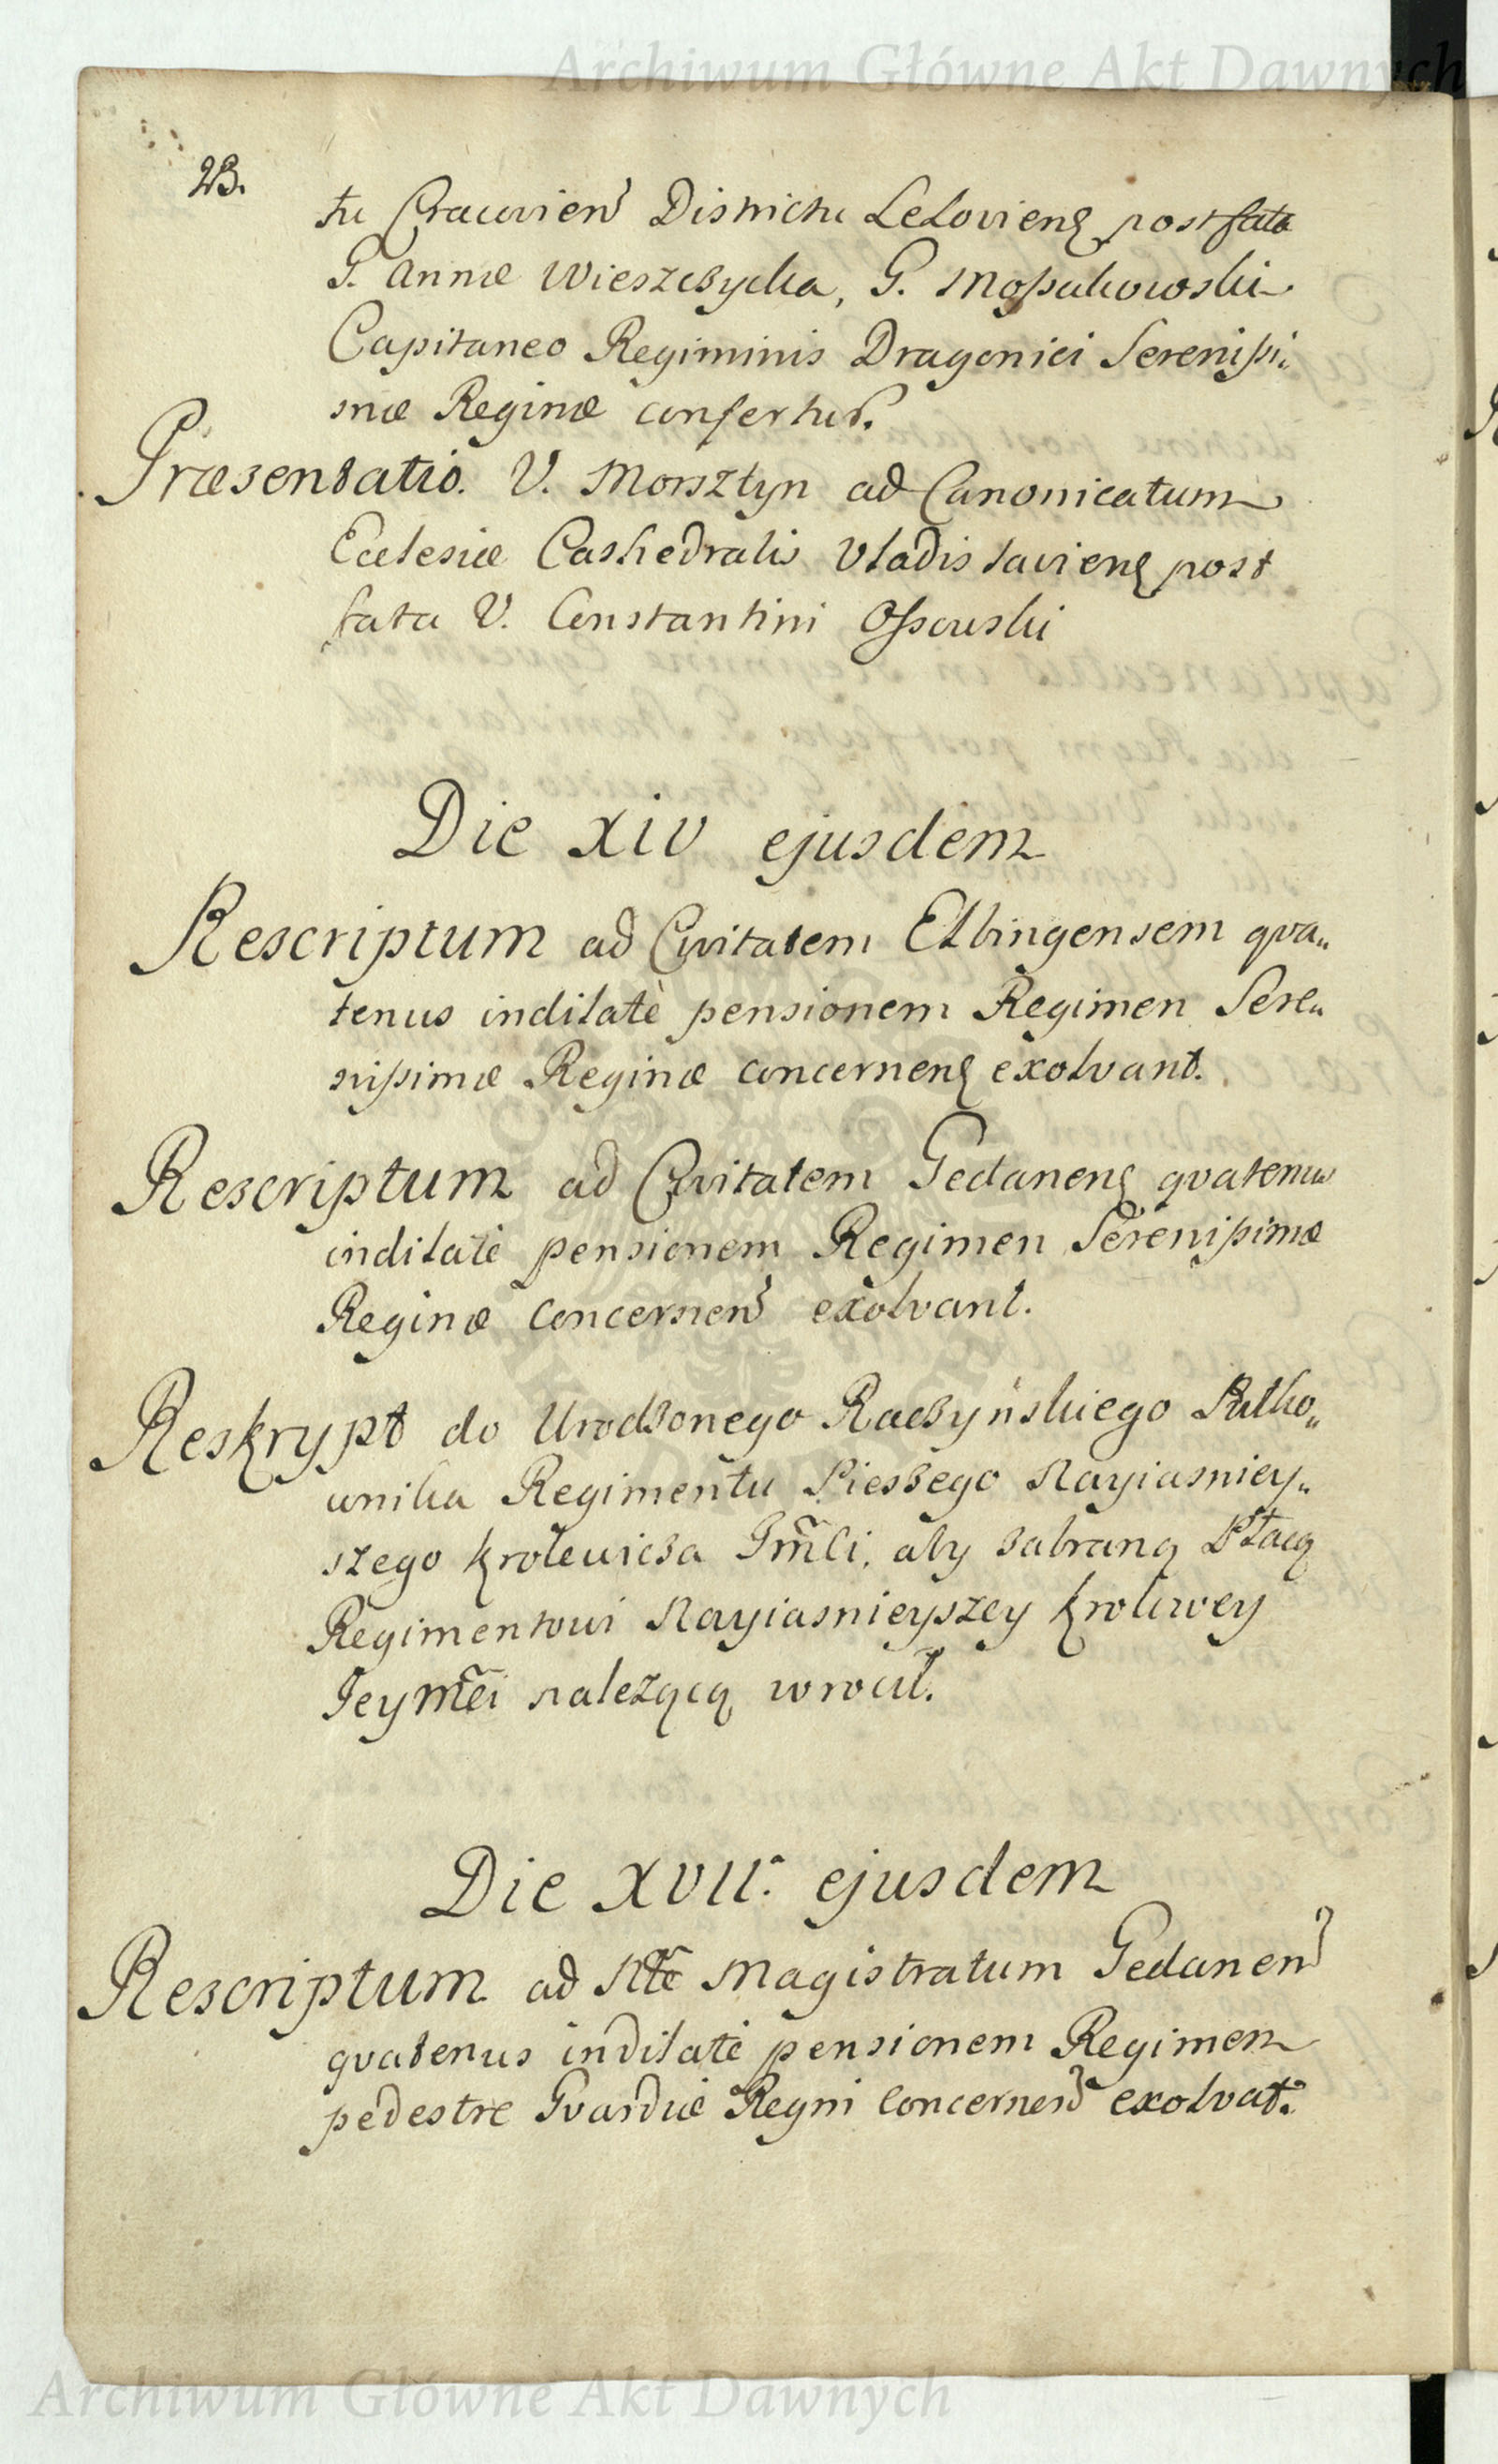 Archiwum Główne Akt Dawnych
28.
tu Cracovien Districtu Leloviens post fata
G. Annæ Wieszczycka, G. Mossakowski
Capitaneo Regiminis Dragonici Serenissi„
mæ Reginæ confertur.
Præsentatio. V. Morsztyn ad Canonicatum
Ecclesiæ Cathedralis Vladislaviens post
fata V. Constantini Ossowski
Die XIV ejusdem
Rescriptum ad Civitatem Elbingensem qva„
tenus indilatè pensionem Regimen Sere„
nissimæ Reginæ concernens exolvant.
Rescriptum ad Civitatem Gedanens qvatenus
indilatè pensionem Regimen Serenissimæ
Reginæ concernen exolvant.
Reskrypt do Urodzonego Raczyńskiego Pułko„
wnika Regimentu Pieszego Nayiasniey„
szego Krolewicza Jmĉi, aby zabraną Płacą
Regimentowi Nayiasnieyszey Krolowey
Jeymĉi nalezącą wrocił.
Die XVII. ejusdem
Rescriptum ad Nĉe Magistratum Gedanen
qvatenus indilatè pensionem Regimen
pedestre Gvardiæ Regni concernen exolvat.
Archiwum Główne Akt Dawnych